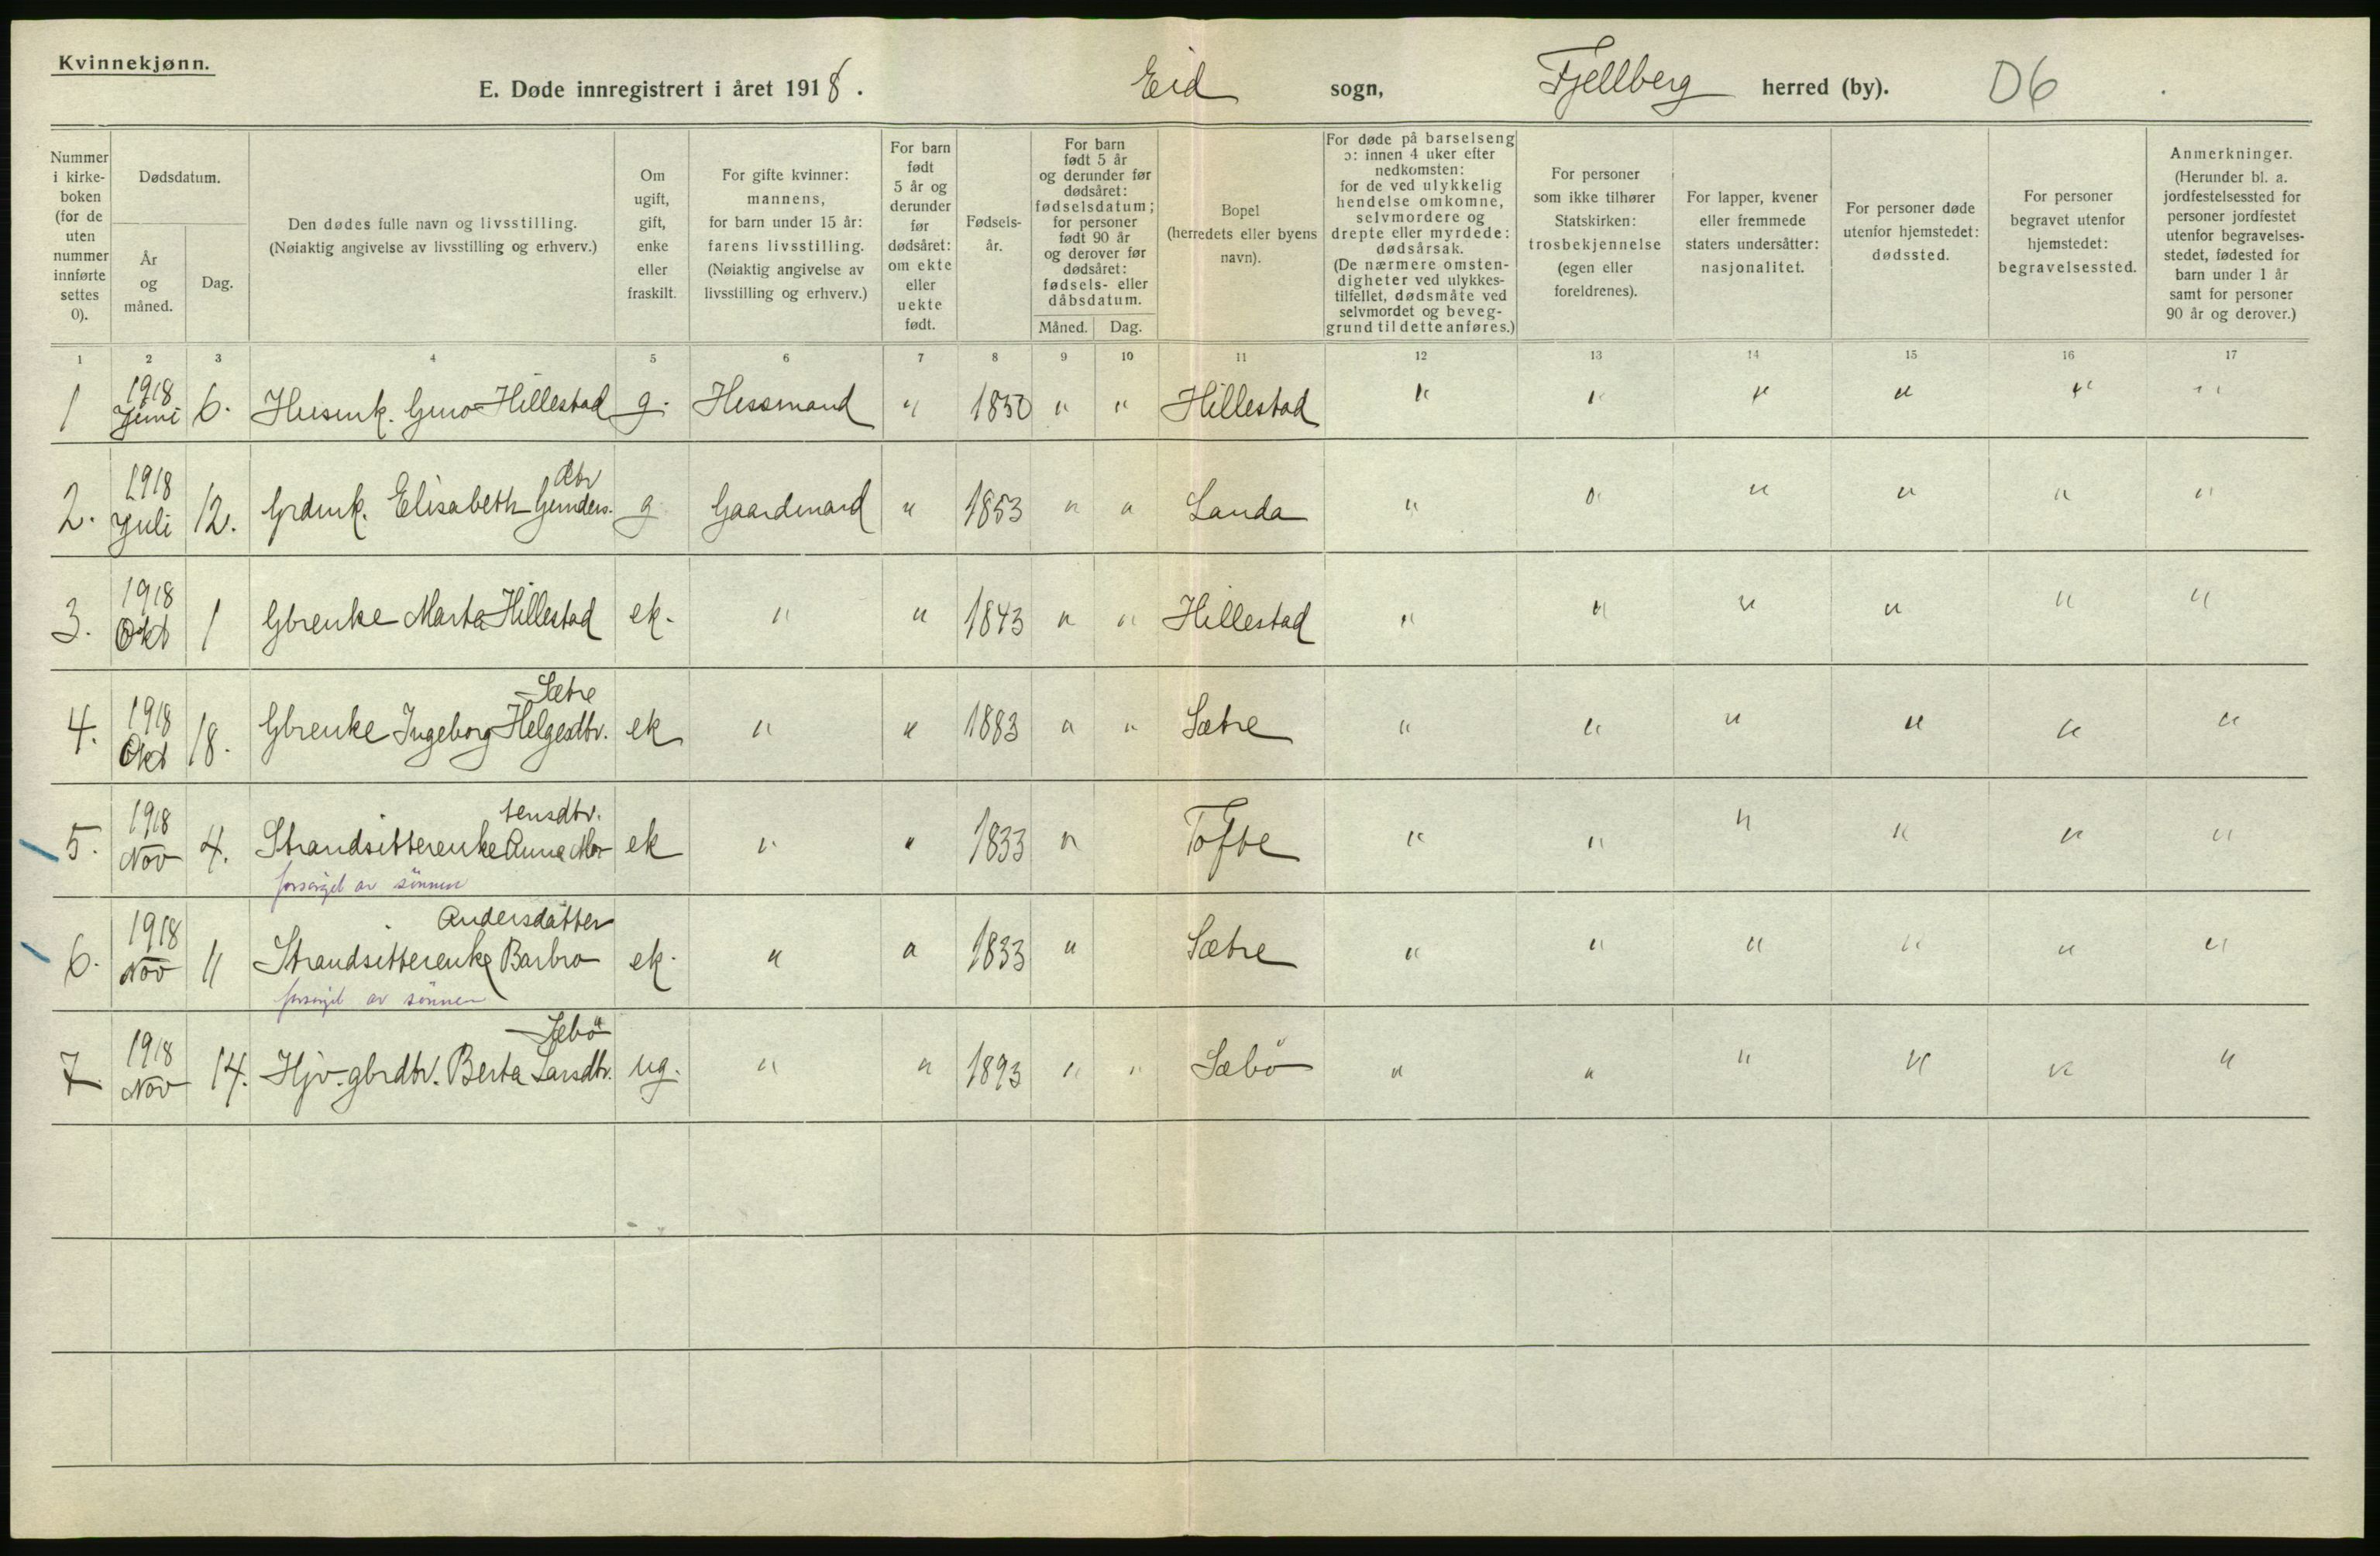 Kvinnekjønn.
E. Døde innregistrert i året 1918. Eid sogn, Fjellberg herred (by). D6
Nummer i kirke- boken (for de uten nummer innførte settes 0).
Dødsdatum.
År og måned.
Dag.
Den dødes fulle navn og livsstilling. (Nøiaktig angivelse av livsstilling og erhverv.)
Om ugift, gift, enke eller fraskilt.
For gifte kvinner: mannens, for barn under 15 år: farens livsstilling. (Nøiaktig angivelse av livsstilling og erhverv.)
For barn født 5 år og derunder før dødsåret: om ekte eller uekte født.
Fødsels- år.
For barn født 5 år og derunder før dødsåret: fødselsdatum; for personer født 90 år og derover før dødsåret: fødsels- eller dåbsdatum.
Måned. Dag.
Bopel (herredets eller byens navn).
For døde på barselseng ɔ: innen 4 uker efter nedkomsten: for de ved ulykkelig hendelse omkomne, selvmordere og drepte eller myrdede: dødsårsak. (De nærmere omsten- digheter ved ulykkes- tilfellet, dødsmåte ved selvmordet og beveg- grund til dette anføres.)
For personer som ikke tilhører Statskirken: trosbekjennelse (egen eller foreldrenes).
For lapper, kvener eller fremmede staters undersåtter: nasjonalitet.
For personer døde utenfor hjemstedet: dødssted.
For personer begravet utenfor hjemstedet: begravelsessted.
Anmerkninger. (Herunder bl. a. jordfestelsessted for personer jordfestet utenfor begravelses- stedet, fødested for barn under 1 år samt for personer 90 år og derover.)
1 2 3 4 5 6 7 8 9 10 11 12 13 14 15 16 17
1 1918 Juni 6. Husmk. Guro Hillestad g. Hussmand " 1850 " " Hillestad " " " " " "
2. 1918 Juli 12. Grdmk. Elisabeth Gunders. dtr g Gaardmand " 1853 " " Landa " " " " " "
3. 1918 Okt 1 Gbrenke Marta Hillestad ek. " " 1843 " " Hillestad " " " " " "
4. 1918 Okt 18. Gbrenke Ingeborg Helgesdtr. Sætre ek " " 1883 " " Sætre " " " " " "
5. 1918 Nov 4. Strandsitterenke Anna Mor- tensdtr. ek " " 1833 " Tofte " " " " " "
forsørget av sønnen
6. 1918 Nov 11 Strandsitterenke Barbro Andersdatter ek. " " 1833 " Sætre " " " " " "
forsørget av sønnen
7 1918 Nov 14. Hjv. gbrdtr. Berta Larsdtr. Sebö ug. " " 1893 " " Sæbö " " " " " "